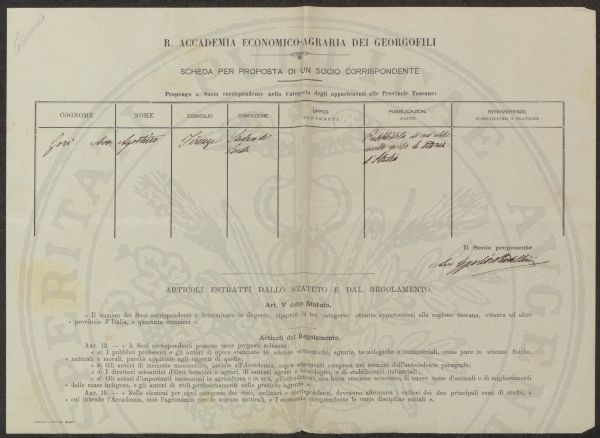 Giovanni
R. ACCADEMIA ECONOMICO-AGRARIA DEI GEORGOFILI
SCHEDA PER PROPOSTA DI UN SOCIO CORRISPONDENTE
Propongo a Socio corrispondente nella Categoria degli appartenenti alle Provincie Toscane:
COGNOME NOME DOMICILIO CONDIZIONE UFFICI SOSTENUTI PUBBLICAZIONI FATTE BENEMERENZE SCIENTIFICHE O PRATICHE
Gori Avv. Agostino Firenze
Il Socio proponente
ARTICOLI ESTRATTI DALLO STATUTO E DAL REGOLAMENTO.
Art. V dello Statuto.
« Il numero dei Soci corrispondenti è determinato in dugento, ripartiti in tre categorie: ottanta appartenenti alla regione toscana, ottanta ad altre
« provincie d'Italia, e quaranta stranieri ».
Articoli del Regolamento.
ART. 12. — « A Soci corrispondenti possono esser proposti soltanto:
« a) I pubblici professori e gli autori di opere stampate in scienze economiche, agrarie, tecnologiche e commerciali, come pure in scienze fisiche,
« naturali e morali, purchè applicate agli oggetti di quelle;
« b) Gli autori di memorie manoscritte, inviate all'Accademia, sopra argomenti compresi nei termini dell'antecedente paragrafo;
« c) I direttori scientifici d'Orti botanici e agrari, di istituti agrari e tecnologici, o di stabilimenti industriali;
« d) Gli autori d'importanti invenzioni in agricoltura o in arti, gl'introduttori, con buon successo accertato, di nuove razze d'animali o di miglioramenti
« delle razze indigene, e gli autori di utili perfezionamenti agli strumenti o pratiche agrarie ».
ART. 15. — « Nelle elezioni per ogni categoria dei Soci, ordinari e corrispondenti, dovranno alternarsi i cultori dei due principali rami di studio, a
« cui intende l'Accademia, cioè l'agronomia con le scienze naturali, e l'economia comprendente le varie discipline sociali ».